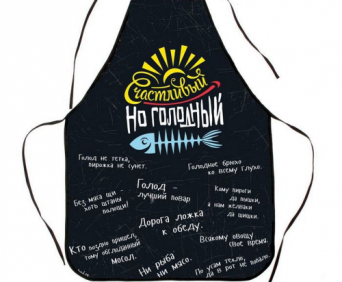 Счастливый
Но голодный
Голод не тетка,
пирожка не сунет.
Голодное брюхо
ко всему глухо.
Голод –
лучший повар
Без мяса щи –
хоть штаны
полощи!
Кому пироги
да пышки,
а нам желваки
да шишки.
Дорога ложка
к обеду.
Кто поздно пришел,
тому обглоданный
мосол.
Всякому овощу
свое время.
Ни рыба
ни мясо.
По усам текло,
да в рот не попало.